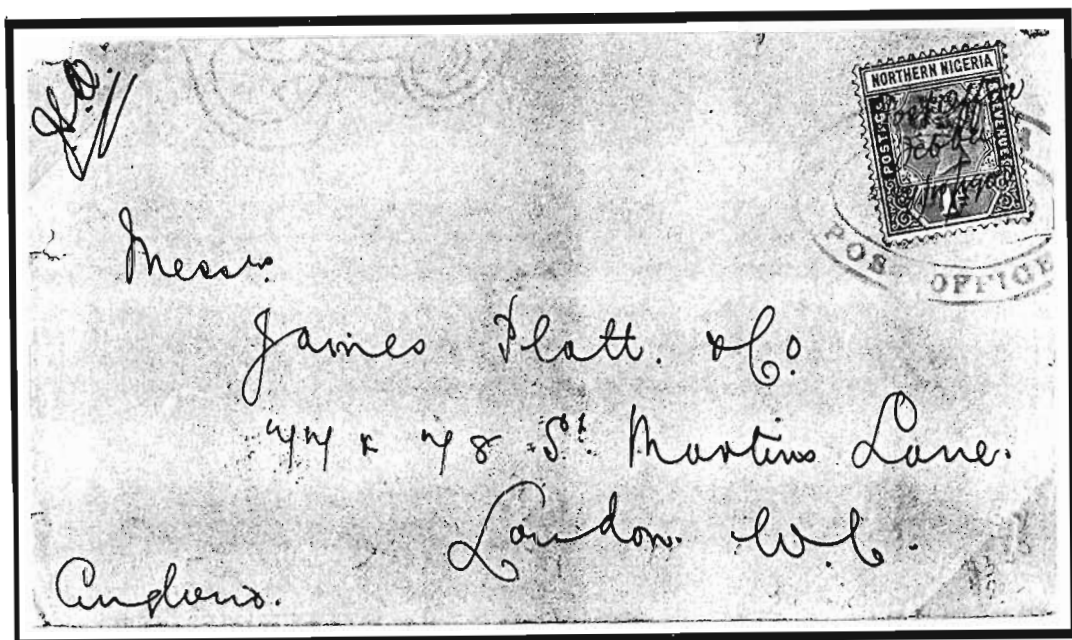 NORTHERN NIGERIA
POSTAGE
REVENUE
Post Office
Jebba
POST OFFICE
Messrs.
James Platt. & Co.
77 & 78 St. Martins Lane.
London. W.C.
England.